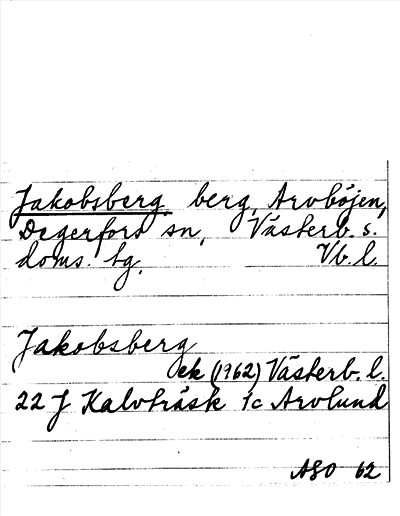 Jakobsberg, berg, Arvböjen,
Degerfors sn, Västerb. s.
doms. tg. Vb. l.
Jakobsberg
ek (1962) Västerb. l.
22 J Kalvträsk 1c Arvlund
ASO 62